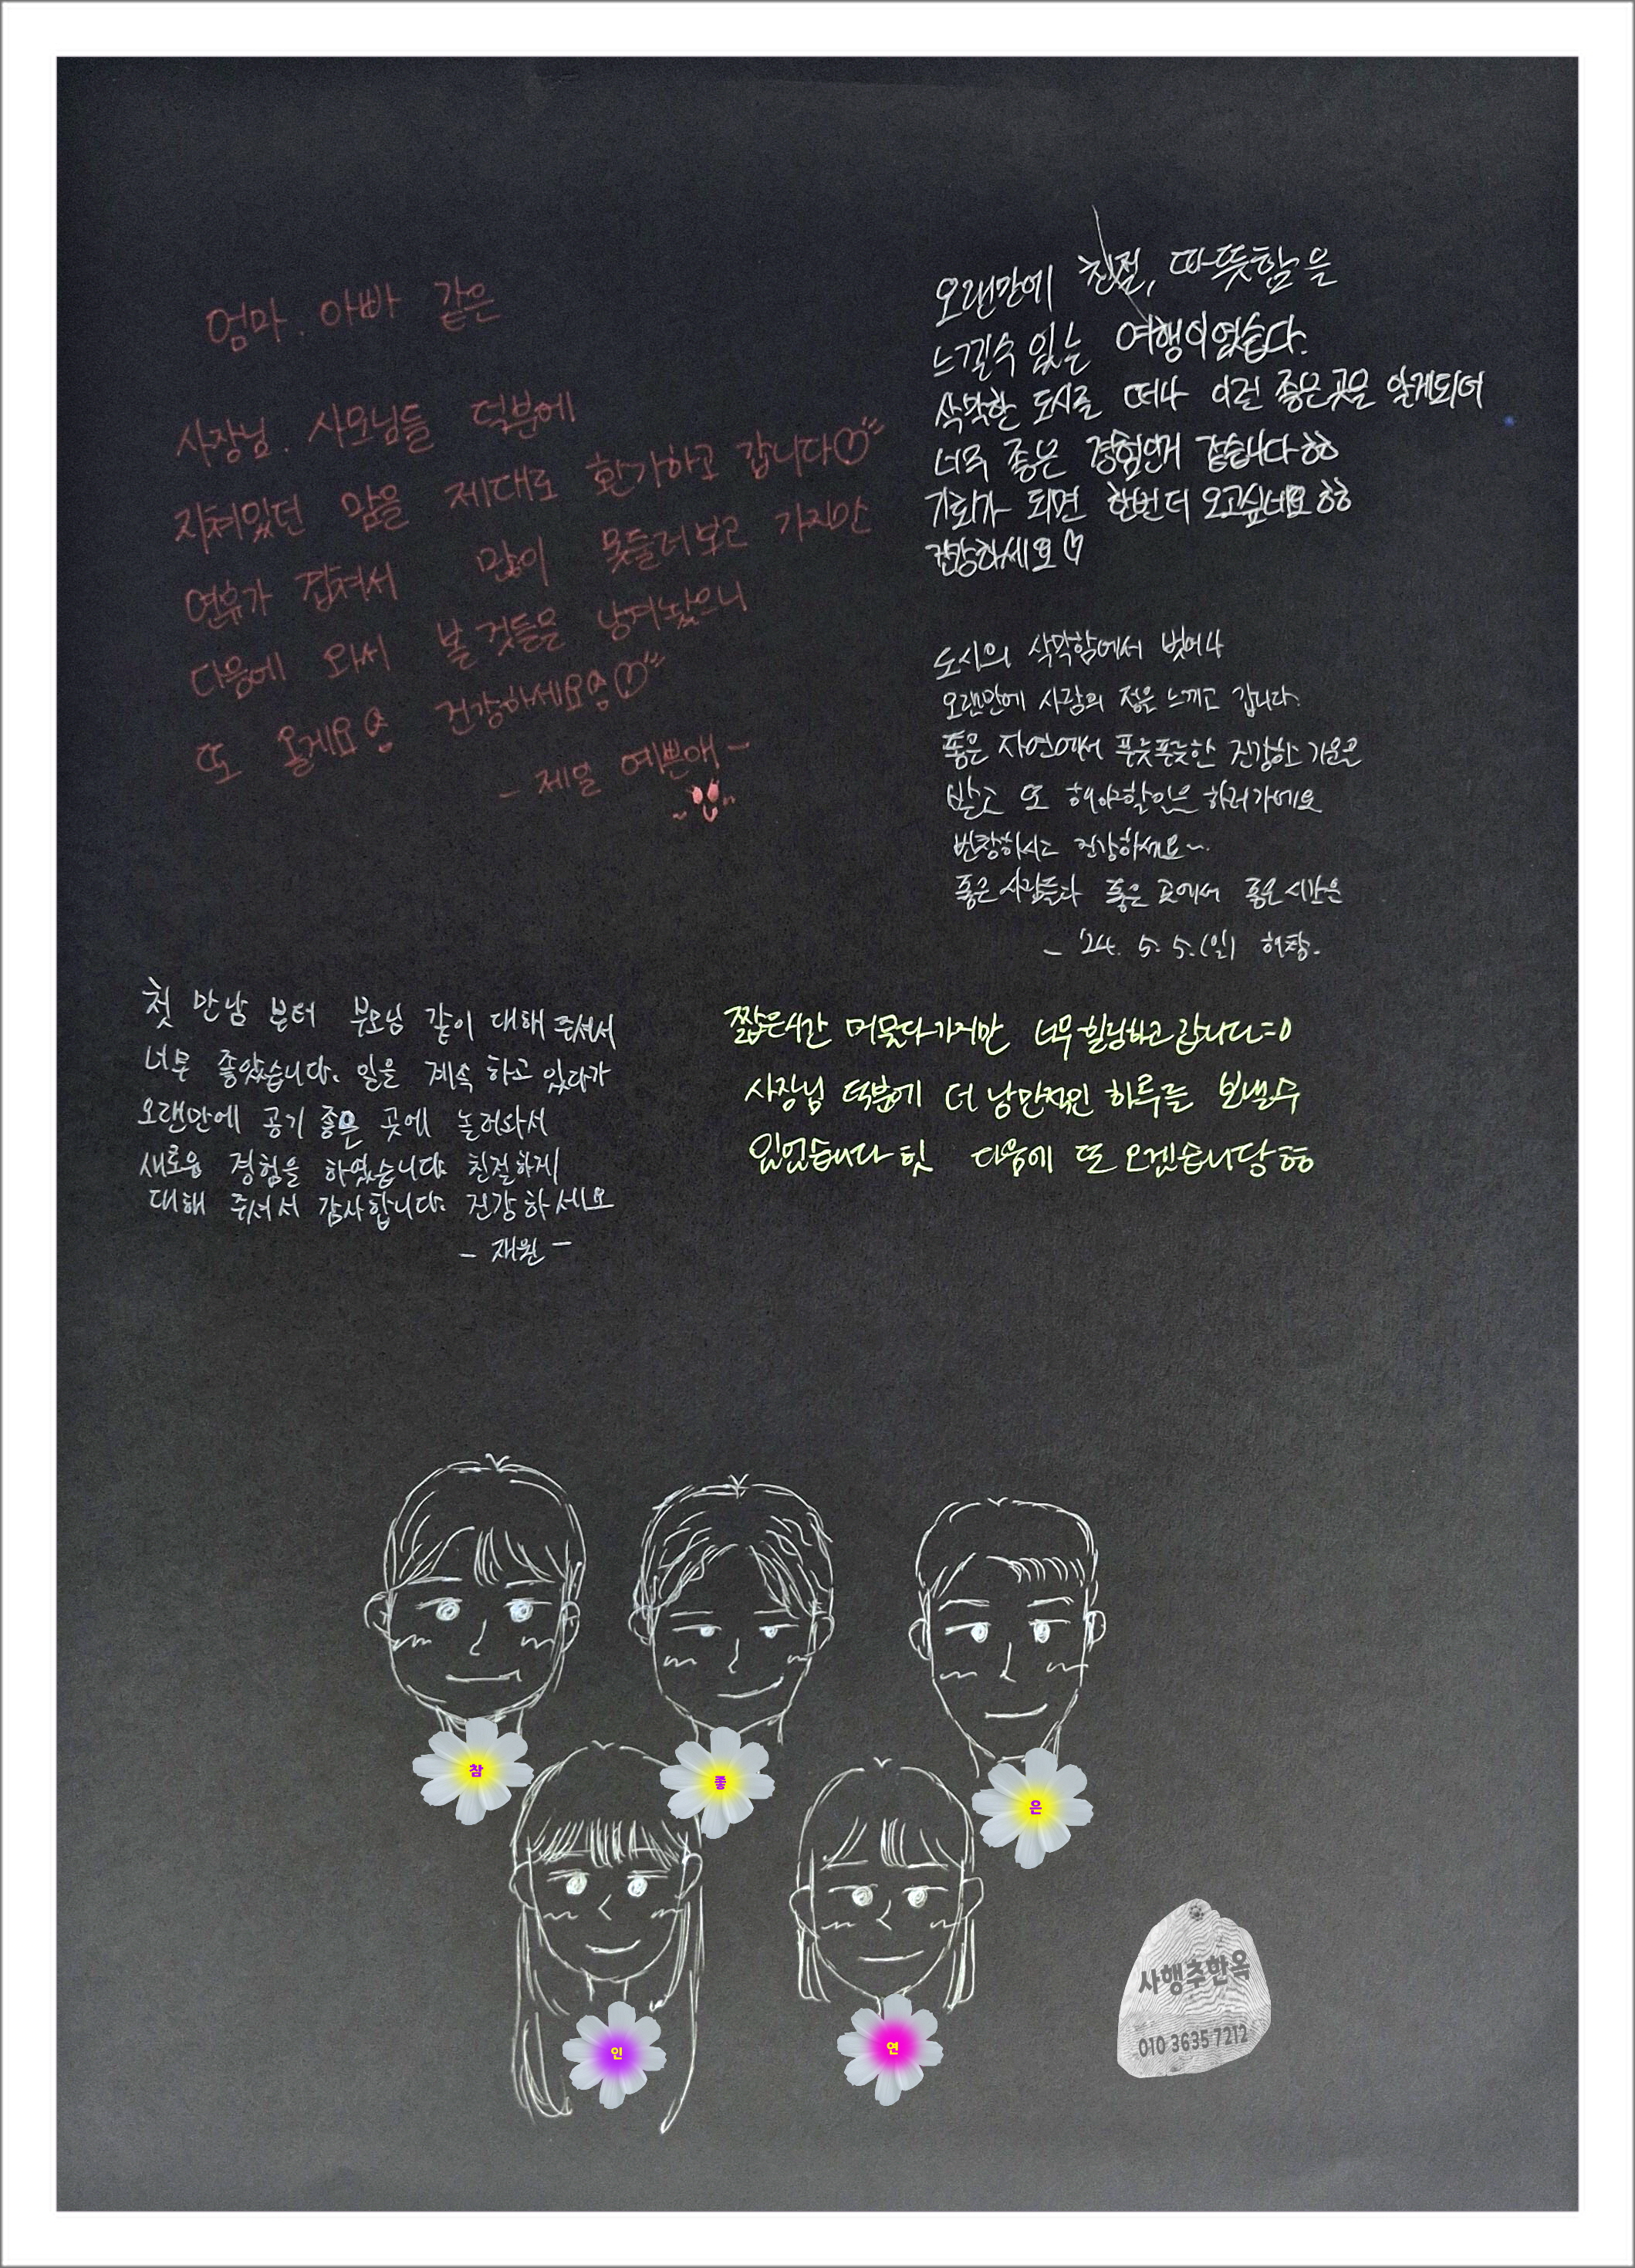 엄마. 아빠 같은
사장님. 사모님들 덕분에
지쳐있던 맘을 제대로 환기하고 갑니다♡
연휴가 잡혀서 많이 못둘러보고 가지만
다음에 와서 볼 것들을 남겨놨으니
또 올게요 건강하세요♡
- 제일 예쁜애 -
오랜만에 친절, 따뜻함을
느낄수 있는 여행이었습다.
삭막한 도시를 떠나 이런 좋은곳을 알게되어
너무 좋은 경험인거 같습니다ㅎㅎ
기회가 되면 한번더 오고싶네요ㅎㅎ
건강하세요♡
도시의 삭막함에서 벗어나
오랜만에 사람의 정을 느끼고 갑니다.
좋은 자연에서 푸릇푸릇한 건강한 기운을
받고 또 해야할일을 하러가네요
번창하시고 건강하세요~
좋은 사람들과 좋은 곳에서 좋은 시간을
- '24. 5. 5.(일) 허창.
첫 만남 부터 부모님 같이 대해 주셔서
너무 좋았습니다. 일을 계속 하고 있다가
오랜만에 공기 좋은 곳에 놀러와서
새로운 경험을 하였습니다. 친절하게
대해 주셔서 감사합니다. 건강하세요
- 재원 -
짧은시간 머뭇다가지만 너무힐링하고갑니다=0
사장님 덕분에 더 낭만적인 하루를 보낼수
있었습니다 힛 다음에 또 오겠습니당ㅎㅎ
참
좋
은
인
연
사행추한옥
010 3635 7212